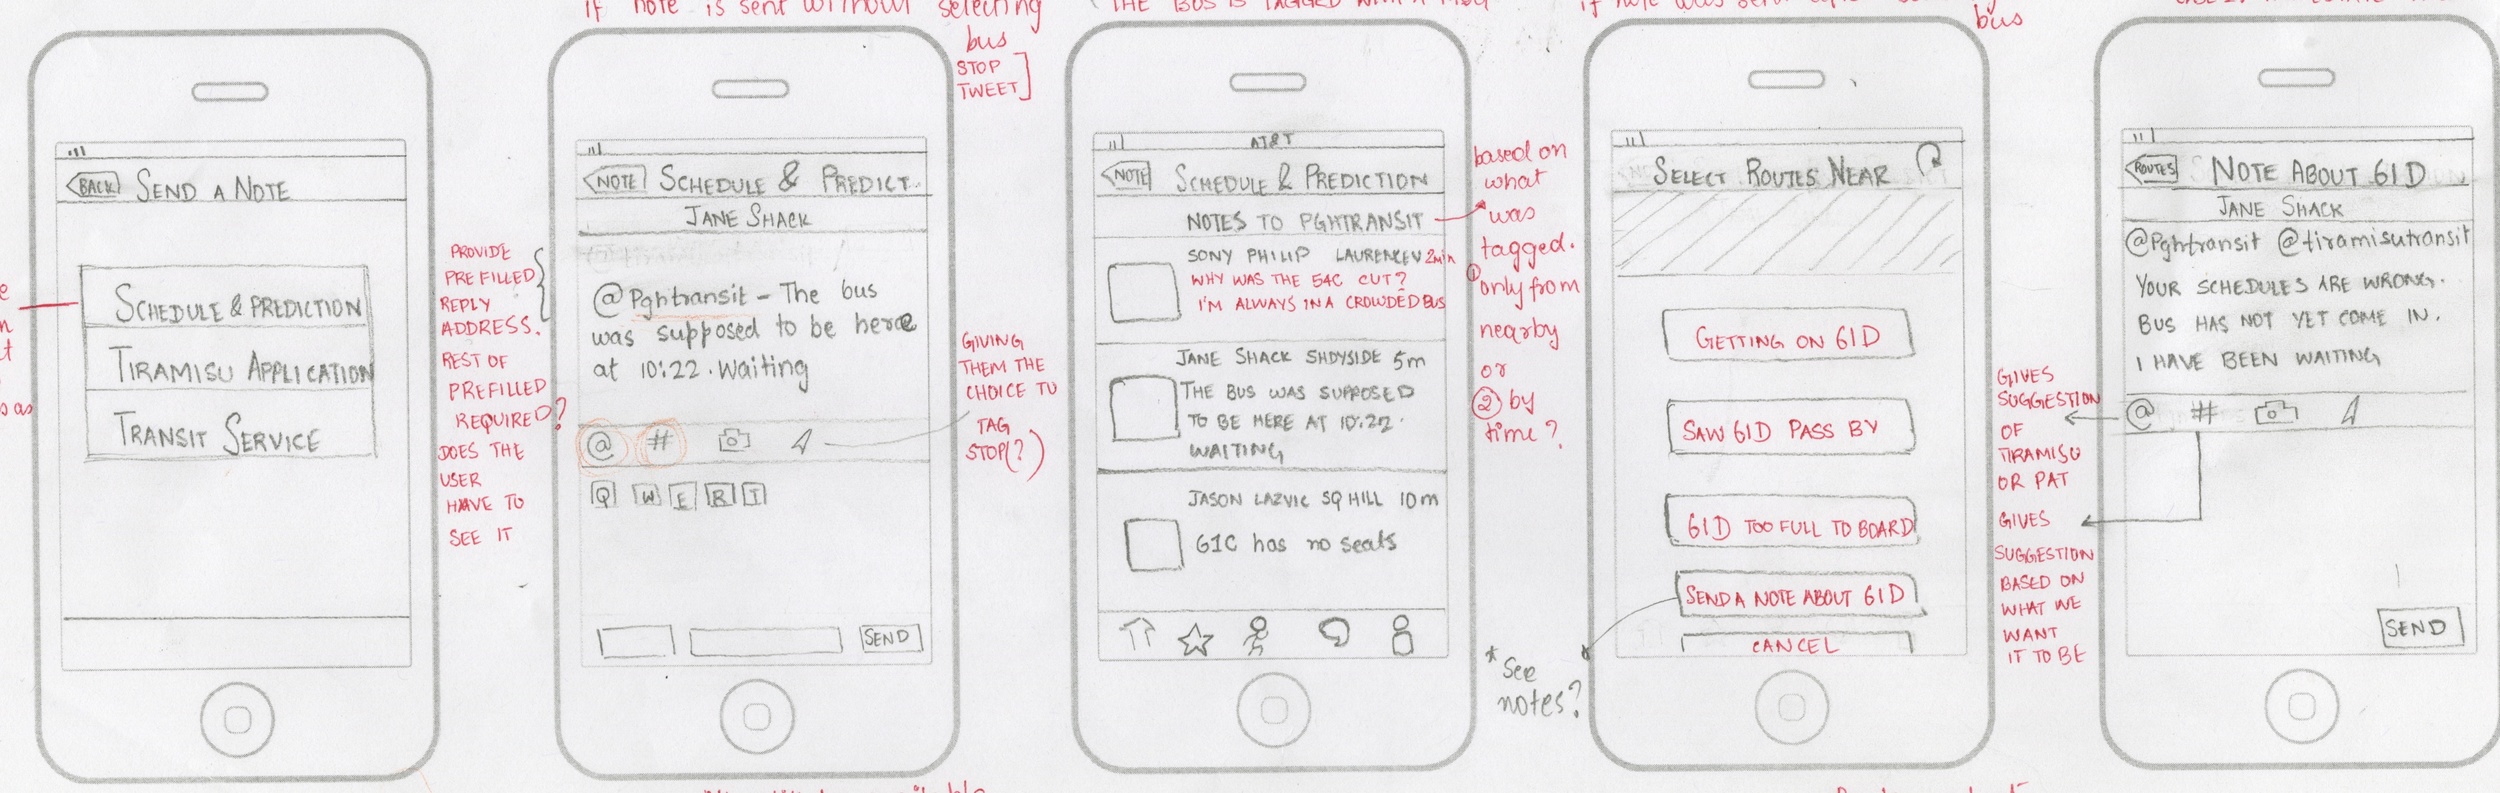 if note is sent without selecting
bus
STOP
TWEET
THE BUS IS TAGGED WITH A
if note was sent
bus
BACK
SEND A NOTE
SCHEDULE & PREDICTION
TIRAMISU APPLICATION
TRANSIT SERVICE
PROVIDE
PREFILLED
REPLY
ADDRESS.
REST OF
PREFILLED
REQUIRED?
DOES THE
USER
HAVE TO
SEE IT
NOTE
SCHEDULE & PREDICT.
JANE SHACK
@Pghtransit - The bus
was supposed to be here
at 10:22. Waiting
@ #
Q W E R T
SEND
GIVING
THEM THE
CHOICE TO
TAG
STOP(?)
AT&T
NOTE
SCHEDULE & PREDICTION
NOTES TO PGHTRANSIT
SONY PHILIP LAURENCEV 2min
WHY WAS THE 54C CUT?
I'M ALWAYS IN A CROWDED BUS
JANE SHACK SHDYSIDE 5m
THE BUS WAS SUPPOSED
TO BE HERE AT 10:22.
WAITING
JASON LAZVIC SQ HILL 10m
61C has no seats
based on
what
was
tagged.
① only from
nearby
or
② by
time?
SELECT ROUTES NEAR
GETTING ON 61D
SAW 61D PASS BY
61D TOO FULL TO BOARD
SEND A NOTE ABOUT 61D
CANCEL
* See
notes?
ROUTES
NOTE ABOUT 61D
JANE SHACK
@Pghtransit @tiramisutransit
YOUR SCHEDULES ARE WRONG.
BUS HAS NOT YET COME IN.
I HAVE BEEN WAITING
@ #
SEND
GIVES
SUGGESTION
OF
TIRAMISU
OR PAT
GIVES
SUGGESTION
BASED ON
WHAT WE
WANT
IT TO BE